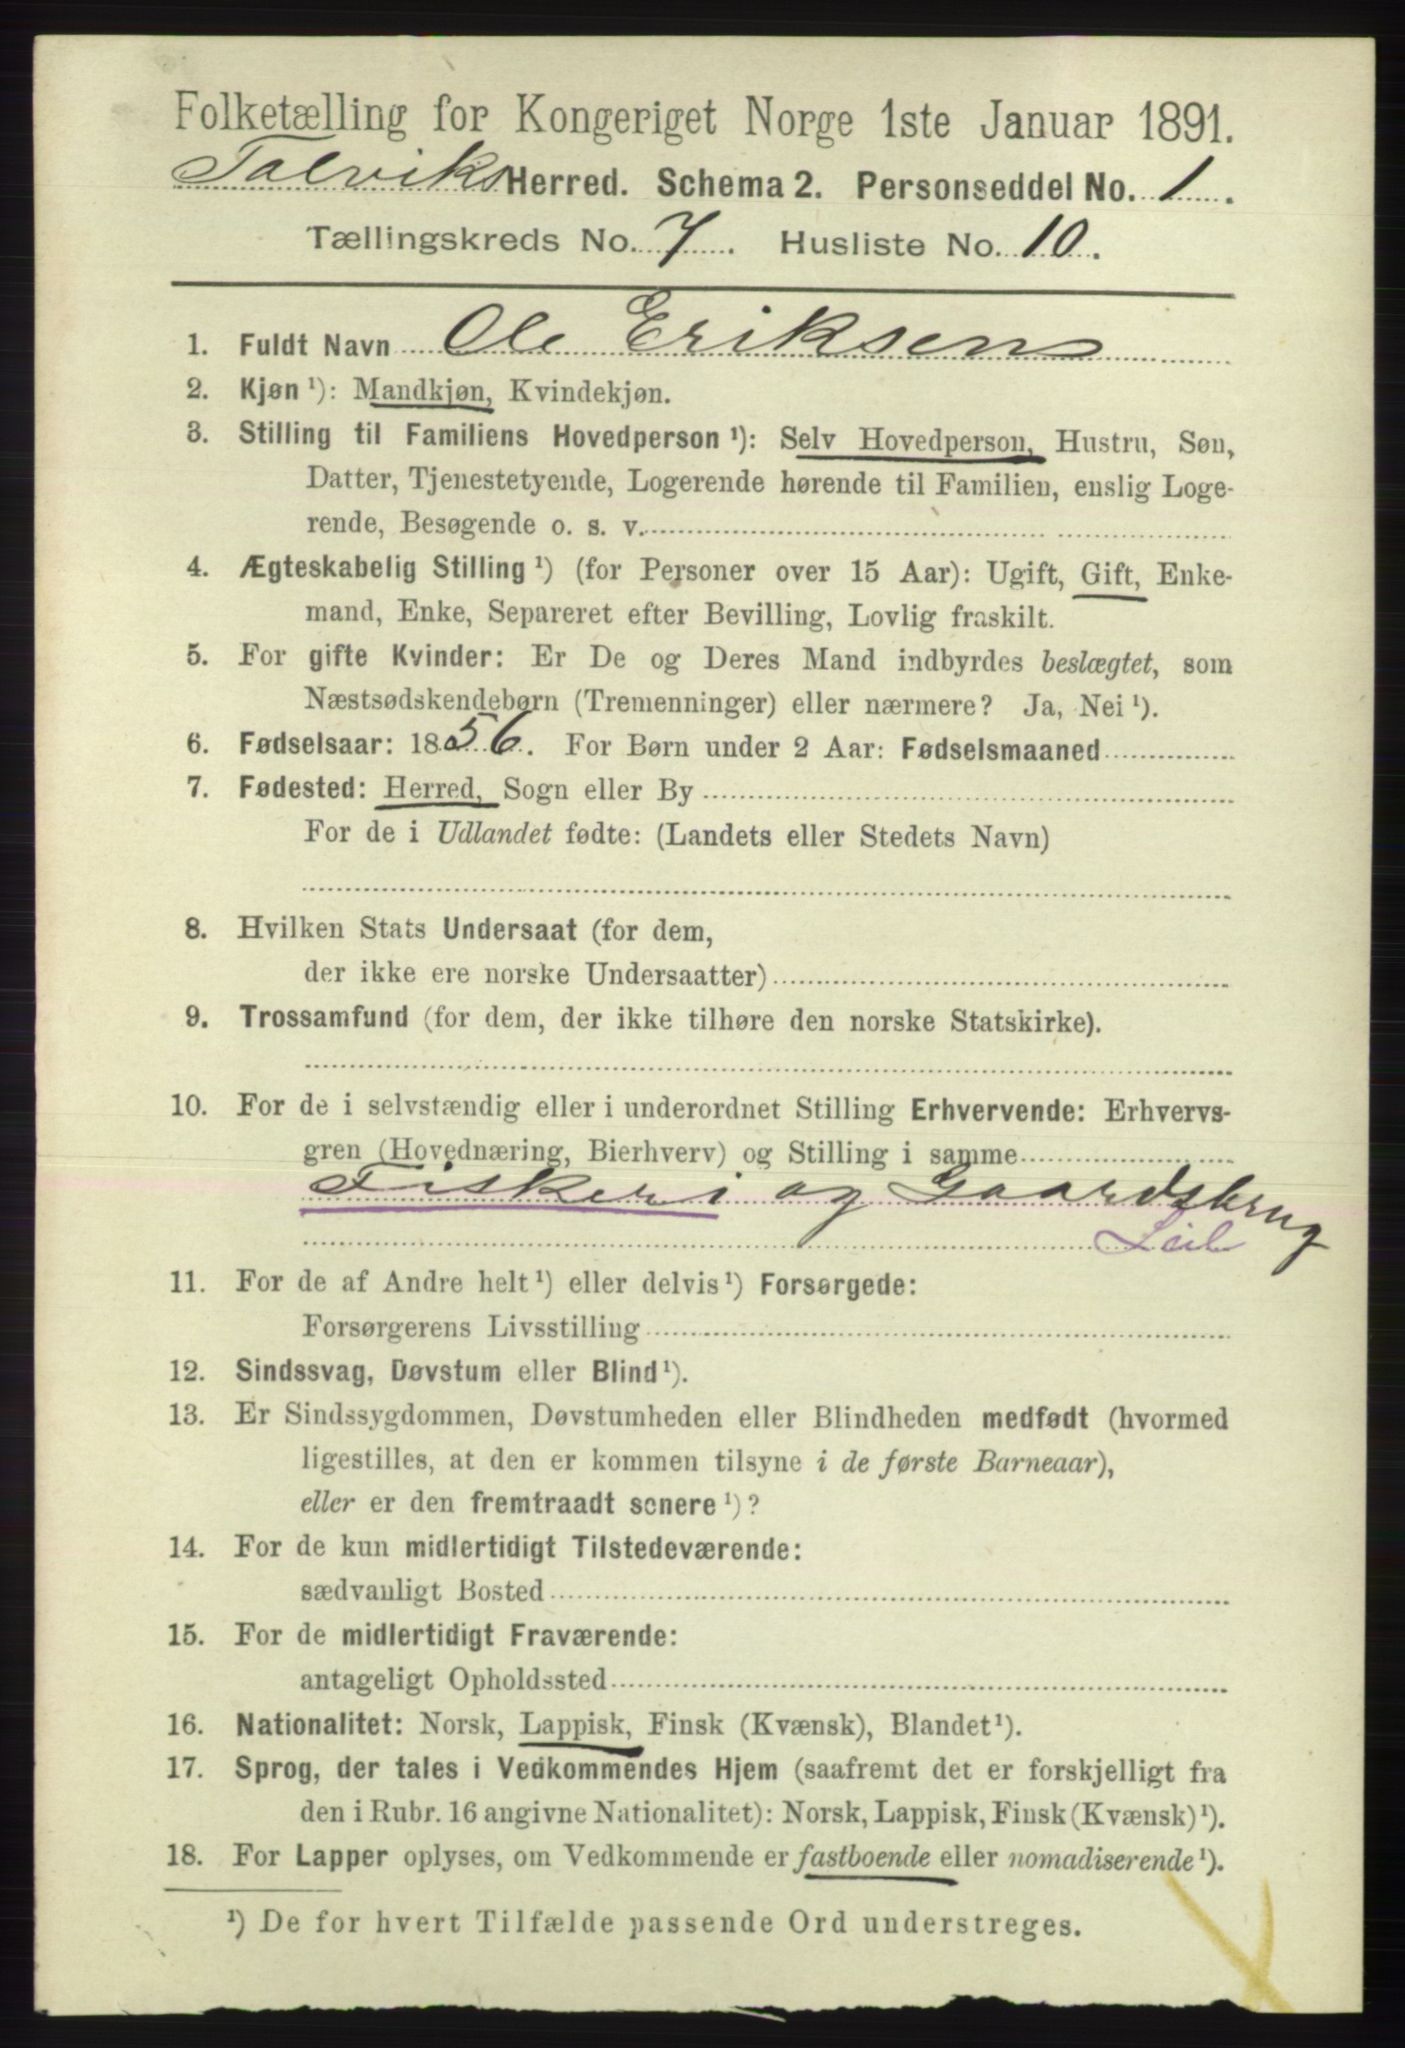 Folketælling for Kongeriget Norge 1ste Januar 1891.
Talviks Herred. Schema 2. Personseddel No. 1.
Tællingskreds No. 7. Husliste No. 10.
1. Fuldt Navn Ole Eriksen
2. Kjøn ¹): Mandkjøn, Kvindekjøn.
3. Stilling til Familiens Hovedperson ¹): Selv Hovedperson, Hustru, Søn,
Datter, Tjenestetyende, Logerende hørende til Familien, enslig Loge-
rende, Besøgende o. s. v.
4. Ægteskabelig Stilling ¹) (for Personer over 15 Aar): Ugift, Gift, Enke-
mand, Enke, Separeret efter Bevilling, Lovlig fraskilt.
5. For gifte Kvinder: Er De og Deres Mand indbyrdes beslægtet, som
Næstsødskendebørn (Tremenninger) eller nærmere? Ja, Nei ¹).
6. Fødselsaar: 1856. For Børn under 2 Aar: Fødselsmaaned
7. Fødested: Herred, Sogn eller By
For de i Udlandet fødte: (Landets eller Stedets Navn)
8. Hvilken Stats Undersaat (for dem,
der ikke ere norske Undersaatter)
9. Trossamfund (for dem, der ikke tilhøre den norske Statskirke).
10. For de i selvstændig eller i underordnet Stilling Erhvervende: Erhvervs-
gren (Hovednæring, Bierhverv) og Stilling i samme
Fiskeri og Gaardsbrug
Leil
11. For de af Andre helt ¹) eller delvis ¹) Forsørgede:
Forsørgerens Livsstilling
12. Sindssvag, Døvstum eller Blind ¹).
13. Er Sindssygdommen, Døvstumheden eller Blindheden medfødt (hvormed
ligestilles, at den er kommen tilsyne i de første Barneaar),
eller er den fremtraadt senere ¹)?
14. For de kun midlertidigt Tilstedeværende:
sædvanligt Bosted
15. For de midlertidigt Fraværende:
antageligt Opholdssted
16. Nationalitet: Norsk, Lappisk, Finsk (Kvænsk), Blandet ¹).
17. Sprog, der tales i Vedkommendes Hjem (saafremt det er forskjelligt fra
den i Rubr. 16 angivne Nationalitet): Norsk, Lappisk, Finsk (Kvænsk) ¹).
18. For Lapper oplyses, om Vedkommende er fastboende eller nomadiserende ¹).
¹) De for hvert Tilfælde passende Ord understreges.